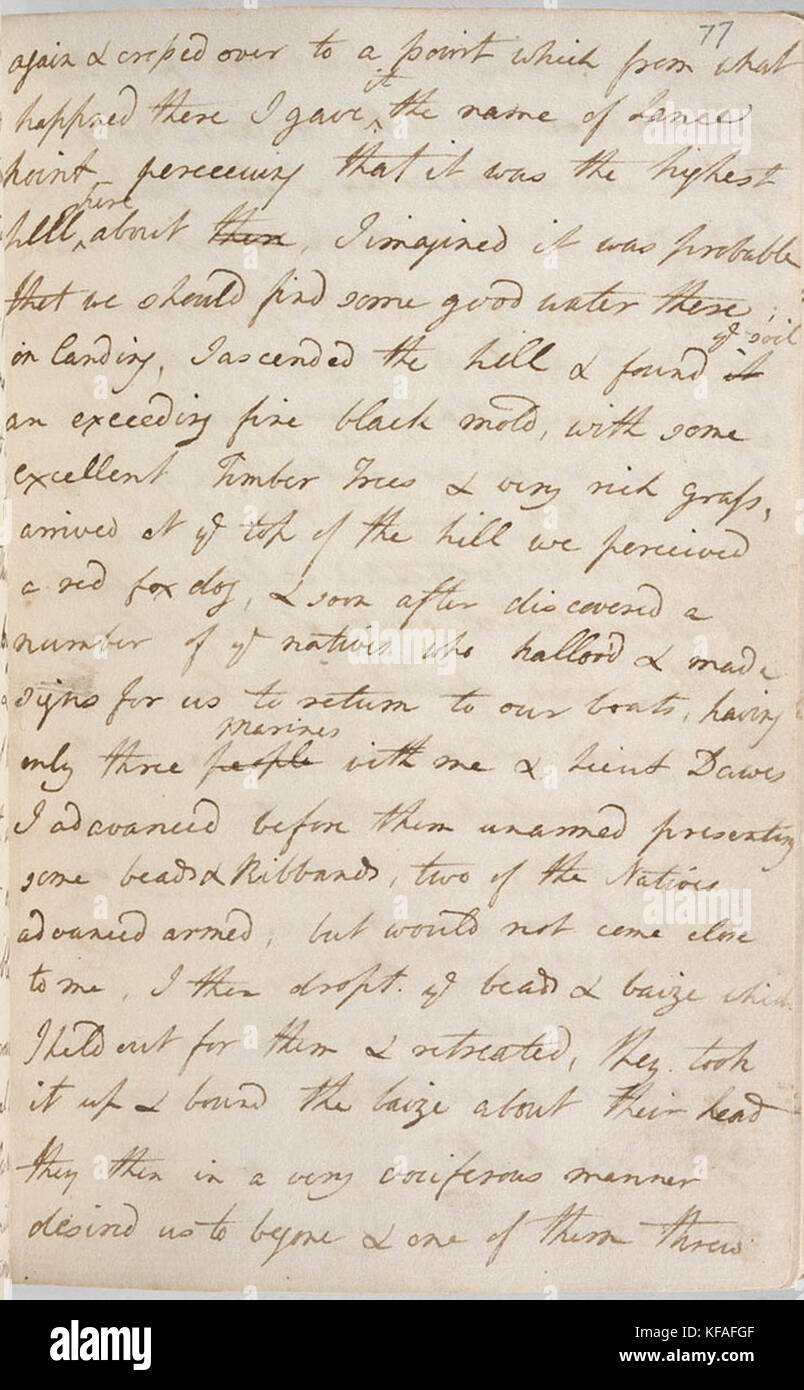 77
again & crossed over to a point which from what
happned there I gave it the name of Lance
point perceiving that it was the highest
hill here about then, I imagined it was probable
that we should find some good water there;
on landing, I ascended the hill & found it ye soil
an exceeding fine black mold, with some
excellent Timber Trees & very rich grass,
arrived at ye top of the hill we perceived
a red fox dog, & soon after discovered a
number of ye natives who hallood & made
signs for us to return to our boats, having
only three people Marines with me & Lieut Dawes
I adavanced before them unarmed presenting
some beads & Ribbands, two of the Natives
advanced armed, but would not come close
to me, I then dropt ye beads & baize which
I held out for them & retreated, they took
it up & bound the baize about their head
they then in a very vociferous manner
desired us to begone & one of them threw
alamy
alamy stock photo
KFAFGF
www.alamy.com